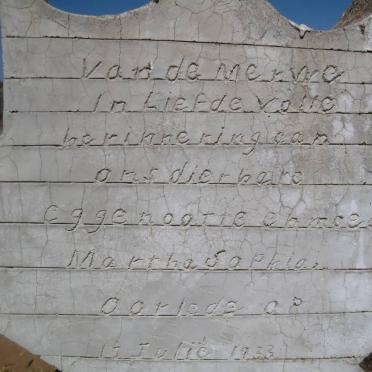 Van de Merwe
In Liefde volle
herinnering aan
ons dierbare
Eggenoote en moe
Martha Sophia
Oorlede op
17 Julie 1933